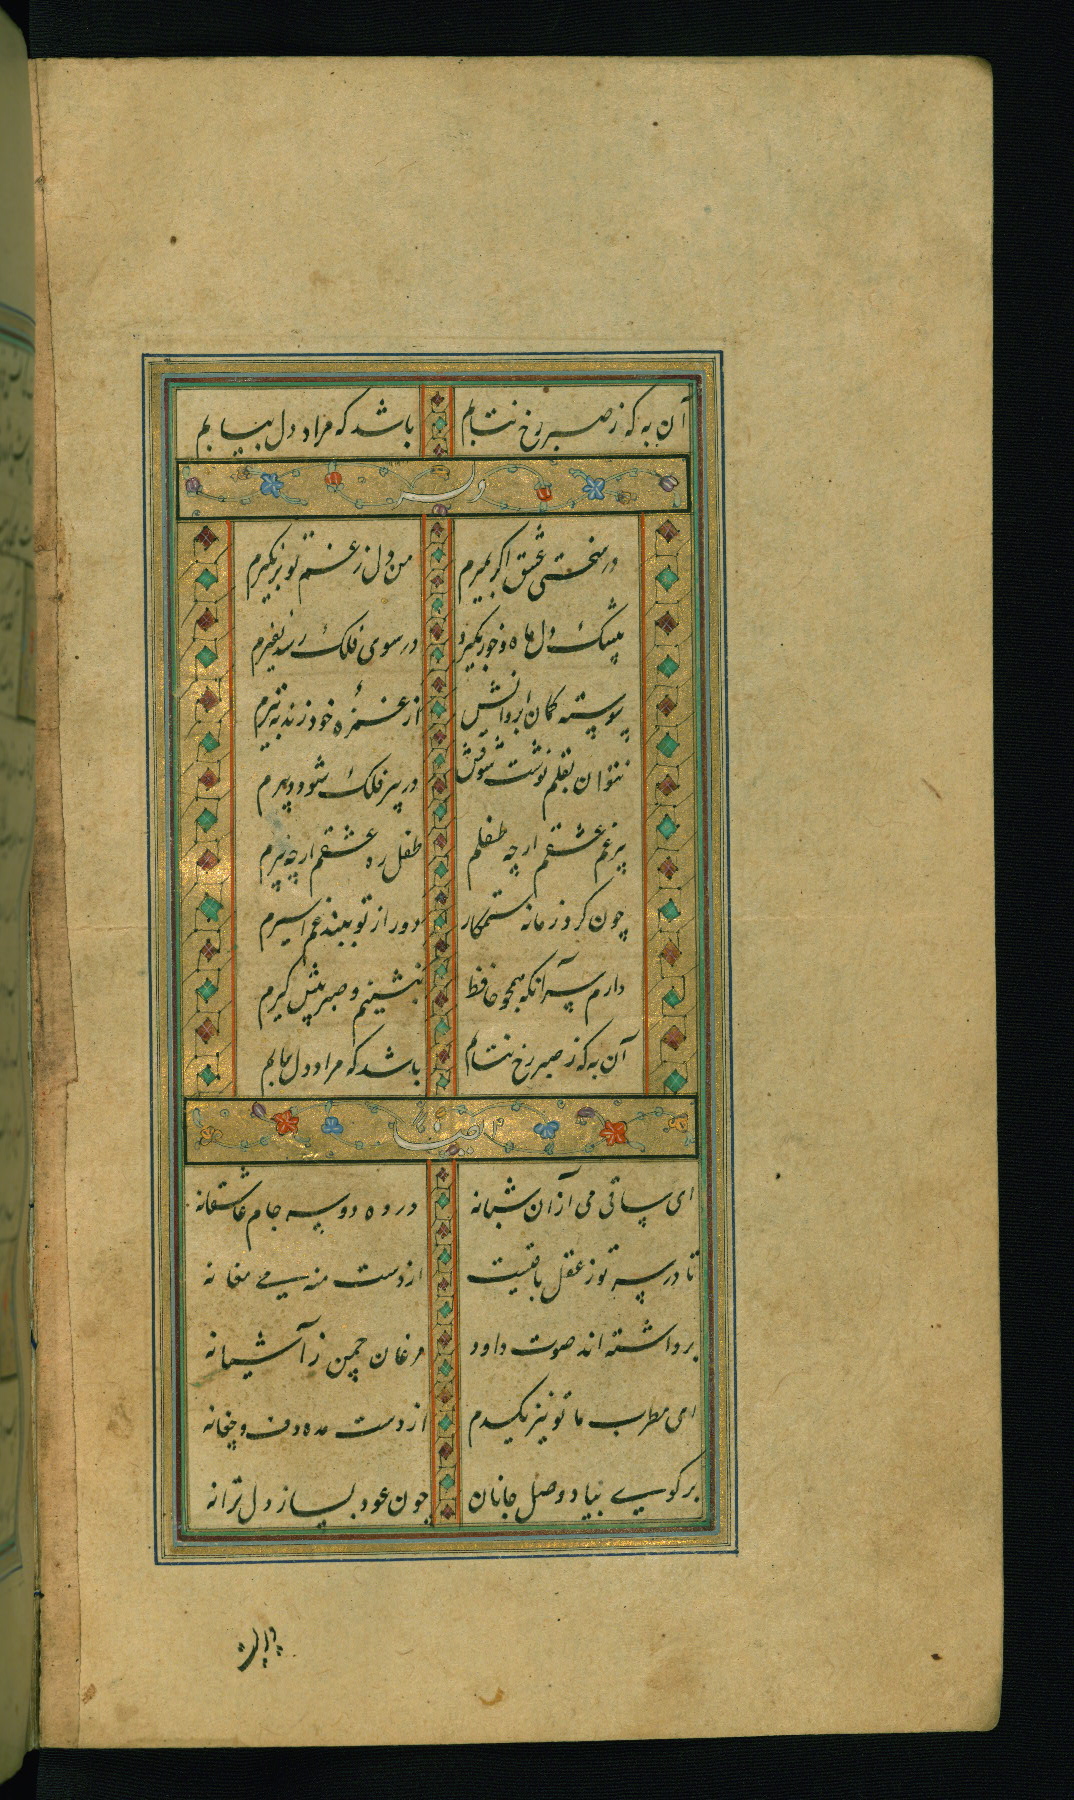 آن به که ز صبر رخ نتابم باشد که مراد دل بیابم
وله
در سختی عشق اگر بمیرم من دل ز غم تو برنگیرم
در سوی فلک رسد نفیرم
پیوسته کمان ابروانش از غمزه خود زند به تیرم
نتوان بقلم نوشت شوقش در پیر فلک شود دبیرم
پیر غم عشقم ارچه طفلم طفل ره عشقم ارچه پیرم
چون کرد زمانه ستمکار دور از تو ببند غم اسیرم
دارم سر آنکه همچو حافظ بنشینم و صبر پیش گیرم
آن به که ز صبر رخ نتابم باشد که مراد دل بیابم
ایضا
ای ساقی می از آن شبانه در ده دو سه جام عاشقانه
تا در سر تو ز عقل باقیست از دست منه می مغانه
برداشته اند صوت داود مرغان چمن ز آشیانه
ای مطرب ما تو نیز یکدم از دست مده دف و چغانه
بر گوی بیاد وصل جانان چون عود بساز دل ترانه